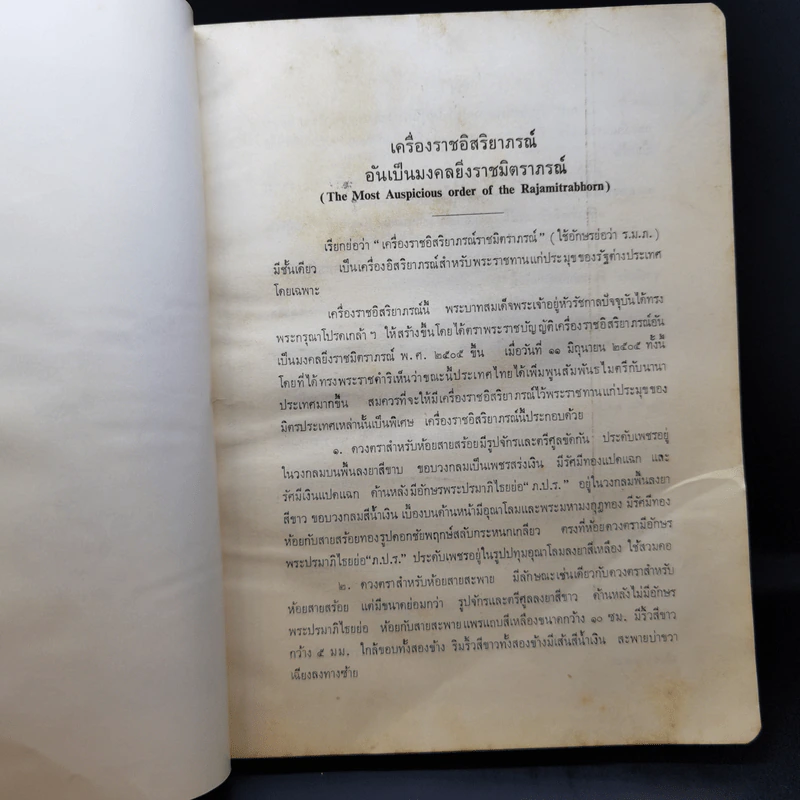 เครื่องราชอิสริยาภรณ์
อันเป็นมงคลยิ่งราชมิตราภรณ์
(The Most Auspicious order of the Rajamitrabhorn)
เรียกย่อว่า "เครื่องราชอิสริยาภรณ์ราชมิตราภรณ์" (ใช้อักษรย่อว่า ร.ม.ภ.)
มีชั้นเดียว เป็นเครื่องอิสริยาภรณ์สำหรับพระราชทานแก่ประมุขของรัฐต่างประเทศ
โดยเฉพาะ
เครื่องราชอิสริยาภรณ์นี้ พระบาทสมเด็จพระเจ้าอยู่หัวรัชกาลปัจจุบันได้ทรง
พระกรุณาโปรดเกล้า ฯ ให้สร้างขึ้นโดยได้ตราพระราชบัญญัติเครื่องราชอิสริยาภรณ์อัน
เป็นมงคลยิ่งราชมิตราภรณ์ พ.ศ. ๒๕๐๕ ขึ้น เมื่อวันที่ ๑๑ มิถุนายน ๒๕๐๕ ทั้งนี้
โดยที่ได้ทรงพระราชดำริเห็นว่าขณะนี้ประเทศไทยได้เพิ่มพูนสัมพันธไมตรีกับนานา
ประเทศมากขึ้น สมควรที่จะให้มีเครื่องราชอิสริยาภรณ์ไว้พระราชทานแก่ประมุขของ
มิตรประเทศเหล่านั้นเป็นพิเศษ เครื่องราชอิสริยาภรณ์นี้ประกอบด้วย
๑. ดวงตราสำหรับห้อยสายสร้อยมีรูปจักรและตรีศูลขัดกัน ประดับเพชรอยู่
ในวงกลมบนพื้นลงยาสีขาบ ขอบวงกลมเป็นเพชรสร่งเงิน มีรัศมีทองแปดแฉก และ
รัศมีเงินแปดแฉก ด้านหลังมีอักษรพระปรมาภิไธยย่อ" ภ.ป.ร." อยู่ในวงกลมพื้นลงยา
สีขาว ขอบวงกลมสีน้ำเงิน เบื้องบนด้านหน้ามีอุณาโลมและพระมหามงกุฎทอง มีรัศมีทอง
ห้อยกับสายสร้อยทองรูปดอกชัยพฤกษ์สลับกระหนกเกลียว ตรงที่ห้อยดวงตรามีอักษร
พระปรมาภิไธยย่อ"ภ.ป.ร." ประดับเพชรอยู่ในรูปปทุมอุณาโลมลงยาสีเหลือง ใช้สวมคอ
๒. ดวงตราสำหรับห้อยสายสะพาย มีลักษณะเช่นเดียวกับดวงตราสำหรับ
ห้อยสายสร้อย แต่มีขนาดย่อมกว่า รูปจักรและตรีศูลลงยาสีขาว ด้านหลังไม่มีอักษร
พระปรมาภิไธยย่อ ห้อยกับสายสะพายแพรแถบสีเหลืองขนาดกว้าง ๑๐ ซม. มีริ้วสีขาว
กว้าง ๕ มม. ใกล้ขอบทั้งสองข้าง ริมริ้วสีขาวทั้งสองข้างมีเส้นสีน้ำเงิน สะพายบ่าขวา
เฉียงลงทางซ้าย